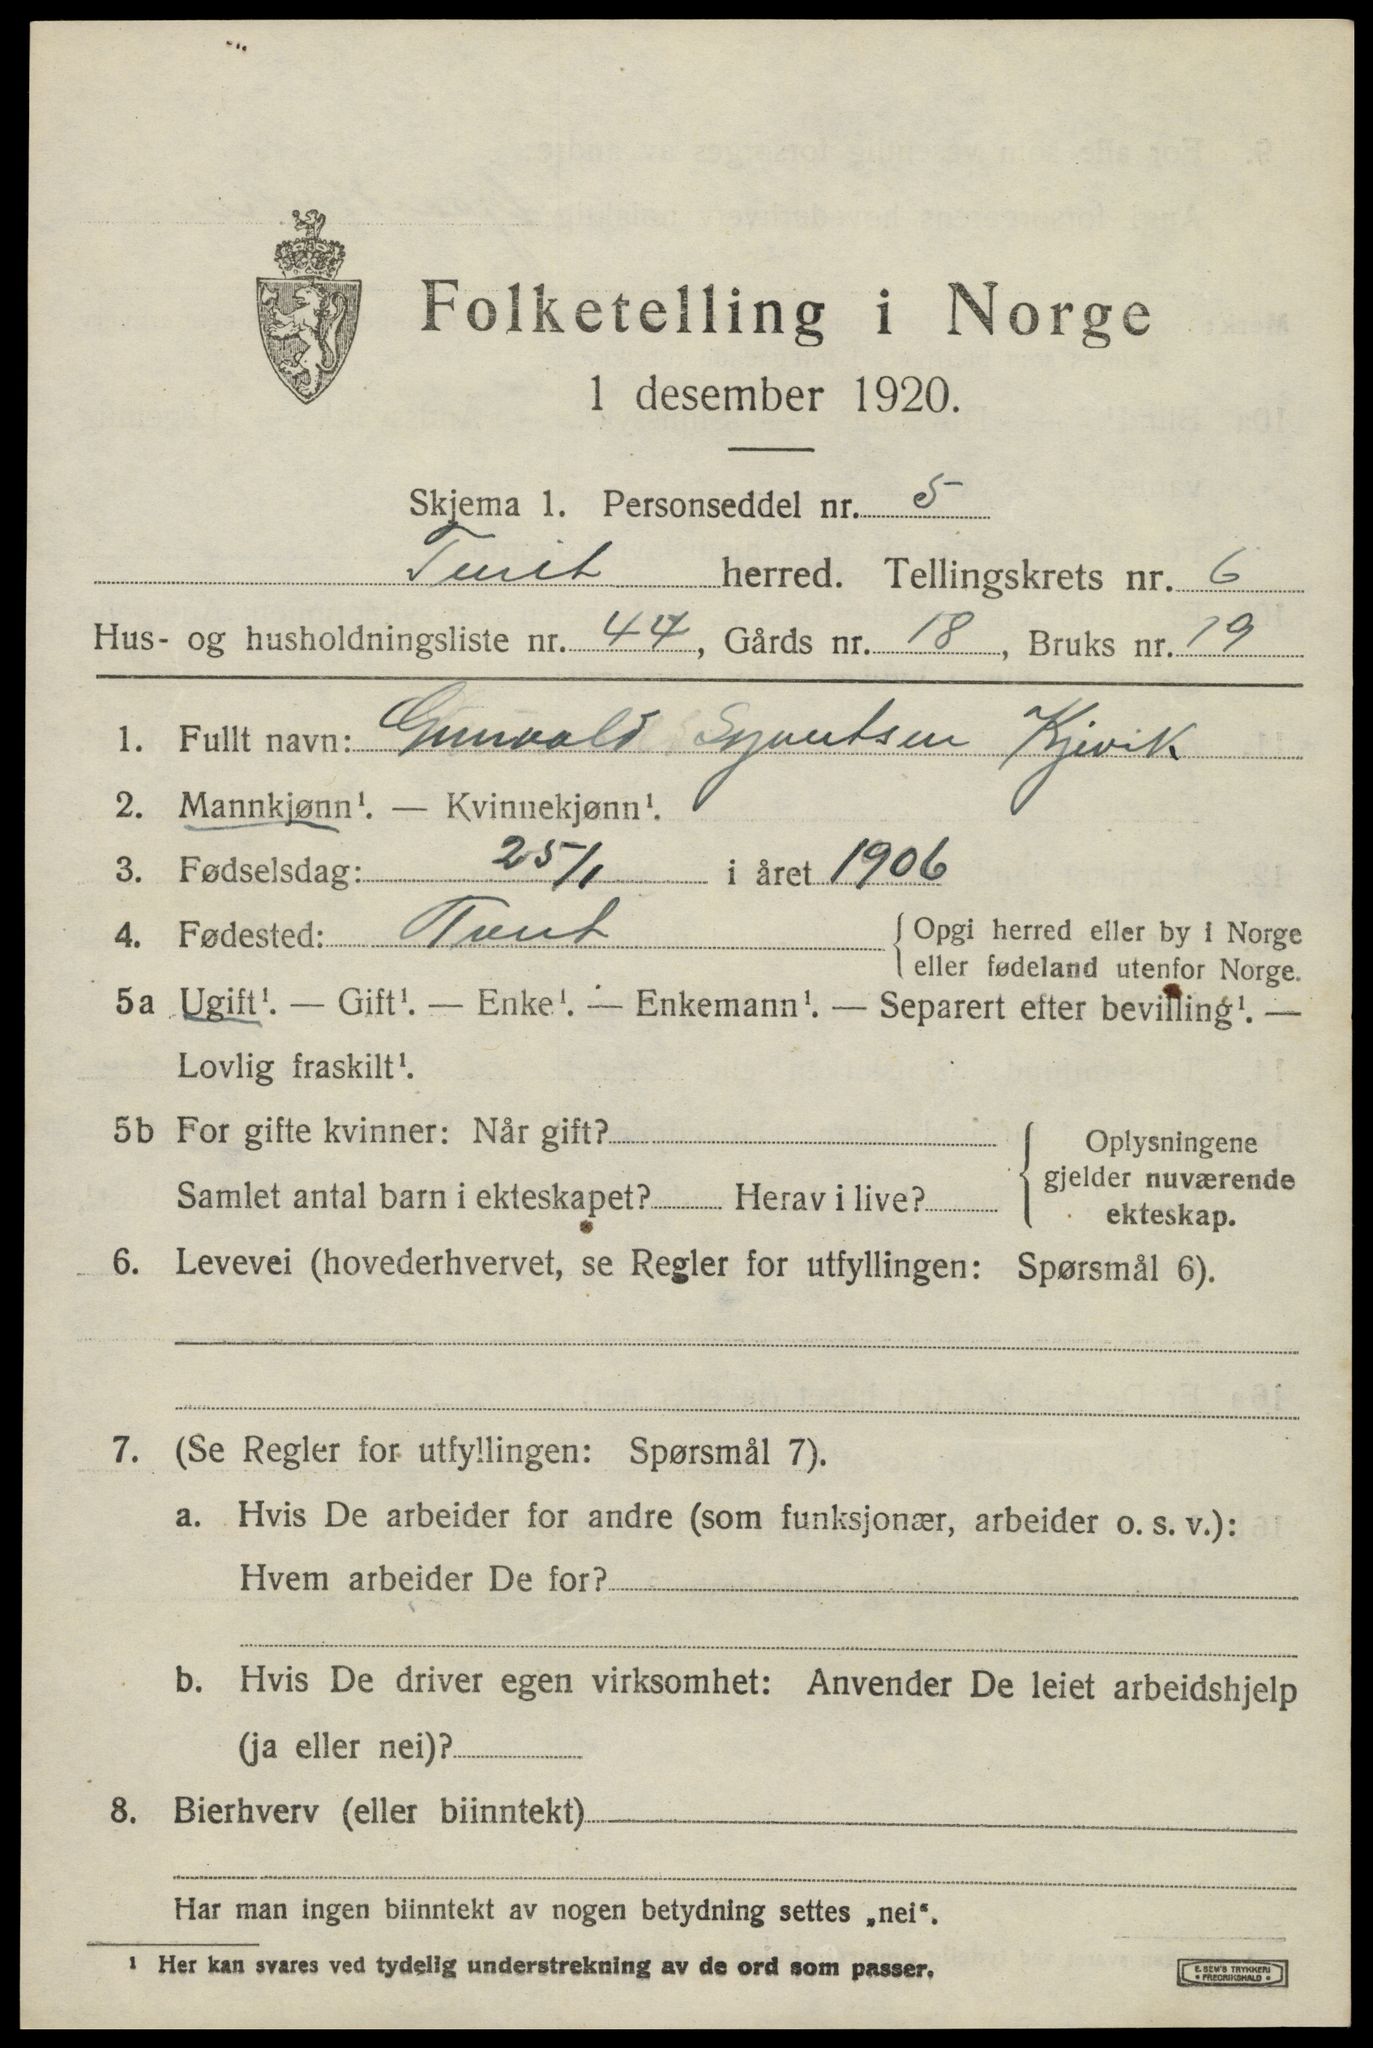 Folketelling i Norge
1 desember 1920.
Skjema 1. Personseddel nr. 5
herred. Tellingskrets nr. 6
Hus- og husholdningsliste nr. 44, Gårds nr. 18, Bruks nr. 19
1. Fullt navn: Gunvald Syvertsen Kjevik
2. Mannkjønn¹. — Kvinnekjønn¹.
3. Fødselsdag: 25/1 i året 1906
4. Fødested: Tveit { Opgi herred eller by i Norge
eller fødeland utenfor Norge.
5a Ugift¹. — Gift¹. — Enke¹. — Enkemann¹. — Separert efter bevilling¹. —
Lovlig fraskilt¹.
5b For gifte kvinner: Når gift?
Samlet antal barn i ekteskapet? Herav i live?
{ Oplysningene
gjelder nuværende
ekteskap.
6. Levevei (hovederhvervet, se Regler for utfyllingen: Spørsmål 6).
7. (Se Regler for utfyllingen: Spørsmål 7).
a. Hvis De arbeider for andre (som funksjonær, arbeider o. s. v.):
Hvem arbeider De for?
b. Hvis De driver egen virksomhet: Anvender De leiet arbeidshjelp
(ja eller nei)?
8. Bierhverv (eller biinntekt)
Har man ingen biinntekt av nogen betydning settes „nei“.
¹ Her kan svares ved tydelig understrekning av de ord som passer.
E. SEM'S TRYKKERI
• FREDRIKSHALD •